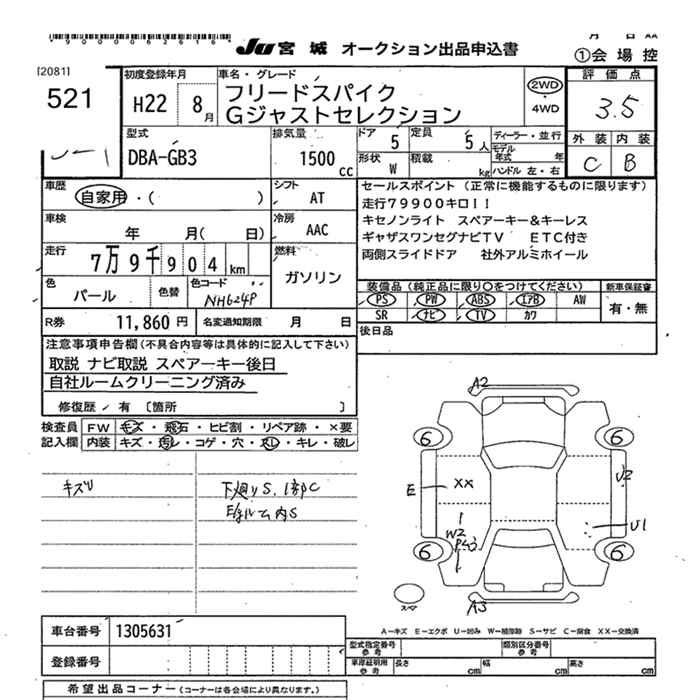 *9000062616*
JU 宮城 オークション出品申込書
月 日 AA
①会場控
[2081]
521
初度登録年月
H22 8月
車名・グレード
フリードスパイク
Gジャストセレクション
2WD
・
4WD
評価点
3.5
外装 内装
C B
型式
DBA-GB3
排気量
1500cc
ドア 5
定員 5人
形状 W
積載 kg
ディーラー・並行
モデル年式 年
ハンドル 左・右
車歴
自家用・( )
シフト
AT
車検
年 月( 日)
冷房
AAC
走行
7万9千904km
燃料
ガソリン
色
パール
色替
色コード
NH624P
R券 11,860円
名変通知期限 月 日
セールスポイント (正常に機能するものに限ります)
走行79900キロ!!
キセノンライト スペアーキー&キーレス
ギャザスワンセグナビTV ETC付き
両側スライドドア 社外アルミホイール
装備品(純正品に限り○をつけてください)
新車保証書
PS PW ABS エアB AW
SR ナビ TV カワ
有・無
後日品
注意事項申告欄(不具合内容等は具体的に記入して下さい)
取説 ナビ取説 スペアーキー後日
自社ルームクリーニング済み
修復歴・有〔箇所 〕
検査員記入欄
FW キズ・飛石・ヒビ割・リペア跡・×要
内装 キズ・汚レ・コゲ・穴・スレ・キレ・破レ
キズリ
下廻りS.1部C
Eルーム内S
A2
6 6
E
XX
U2
W2
U1
6 6
A3
スペア
A-キズ E-エクボ U-凹み W-補修跡 S-サビ C-腐食 XX-交換済
車台番号 1305631
登録番号
型式指定番号 参考
類別区分番号 参考
車庫証明用 参考
長さ cm
幅 cm
高さ cm
希望出品コーナー(コーナーは各会場により異なります。)